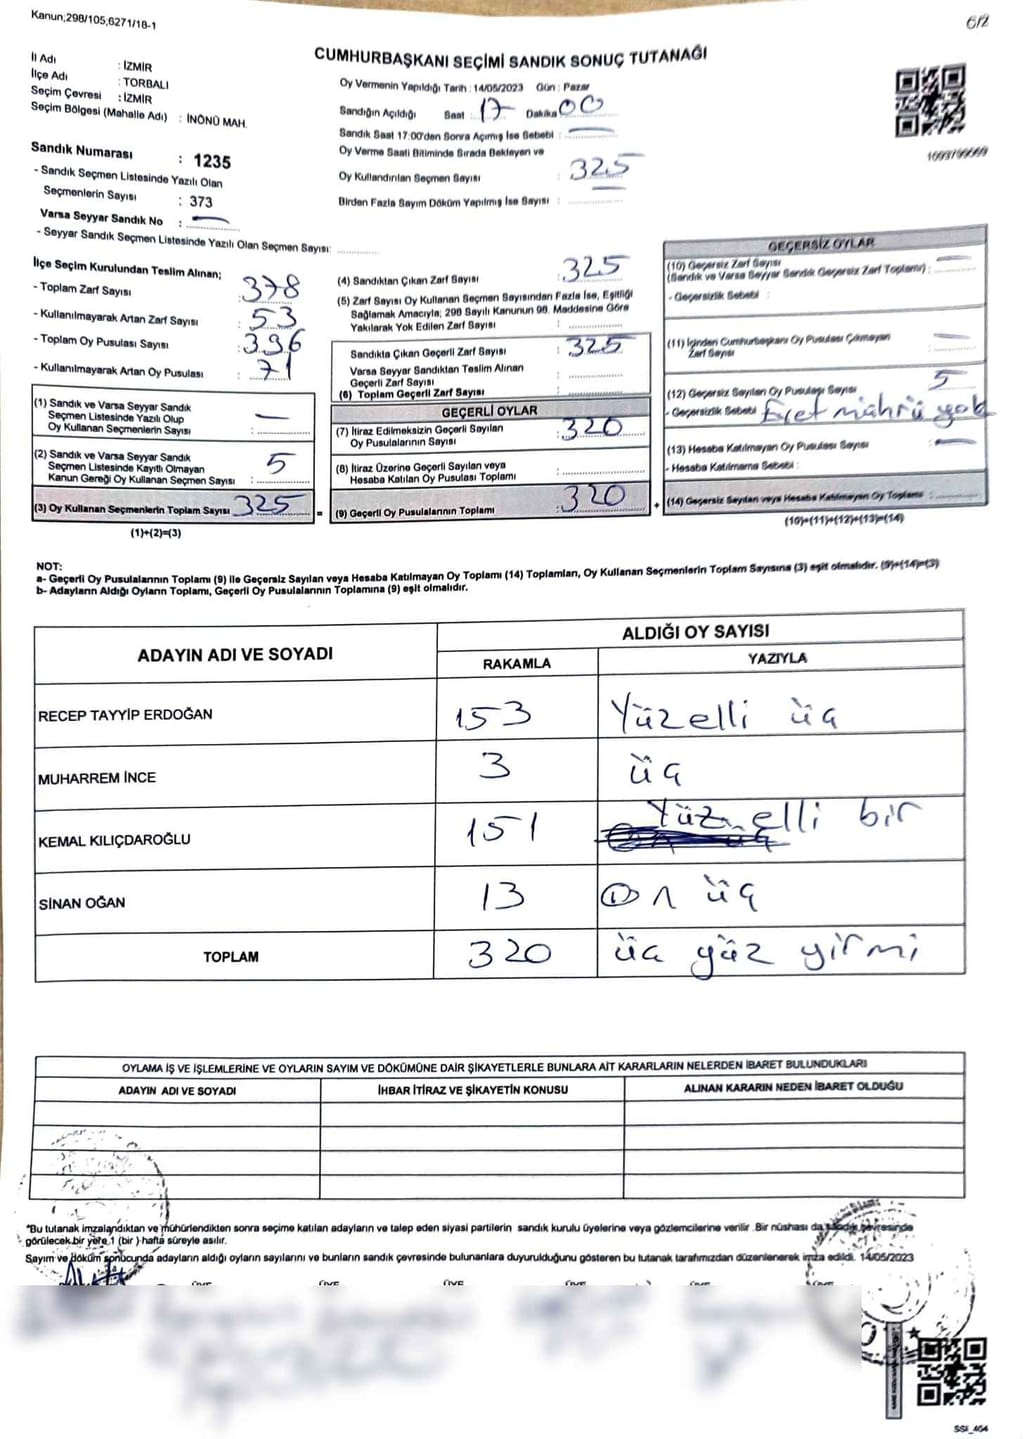 Kanun;298/105,6271/18-1
6/2
CUMHURBAŞKANI SEÇİMİ SANDIK SONUÇ TUTANAĞI
İl Adı : İZMİR
İlçe Adı : TORBALI
Seçim Çevresi : İZMİR
Seçim Bölgesi (Mahalle Adı) : İNÖNÜ MAH.
Sandık Numarası : 1235
- Sandık Seçmen Listesinde Yazılı Olan
Seçmenlerin Sayısı : 373
Varsa Seyyar Sandık No : —
- Seyyar Sandık Seçmen Listesinde Yazılı Olan Seçmen Sayısı:
Oy Vermenin Yapıldığı Tarih : 14/05/2023 Gün : Pazar
Sandığın Açıldığı Saat : 17 Dakika 00
Sandık Saat 17:00'den Sonra Açımış İse Sebebi : —
Oy Verme Saati Bitiminde Sırada Bekleyen ve
Oy Kullandırılan Seçmen Sayısı : 325
Birden Fazla Sayım Döküm Yapılmış İse Sayısı : —
1693799669
İlçe Seçim Kurulundan Teslim Alınan;
- Toplam Zarf Sayısı : 378
- Kullanılmayarak Artan Zarf Sayısı : 53
- Toplam Oy Pusulası Sayısı : 396
- Kullanılmayarak Artan Oy Pusulası : 71
(1) Sandık ve Varsa Seyyar Sandık
Seçmen Listesinde Yazılı Olup
Oy Kullanan Seçmenlerin Sayısı : —
(2) Sandık ve Varsa Seyyar Sandık
Seçmen Listesinde Kayıtlı Olmayan
Kanun Gereği Oy Kullanan Seçmen Sayısı : 5
(3) Oy Kullanan Seçmenlerin Toplam Sayısı 325
(1)+(2)=(3)
=
(4) Sandıktan Çıkan Zarf Sayısı : 325
(5) Zarf Sayısı Oy Kullanan Seçmen Sayısından Fazla İse, Eşitliği
Sağlamak Amacıyla; 298 Sayılı Kanunun 98. Maddesine Göre
Yakılarak Yok Edilen Zarf Sayısı :
Sandıkta Çıkan Geçerli Zarf Sayısı : 325
Varsa Seyyar Sandıktan Teslim Alınan
Geçerli Zarf Sayısı :
(6) Toplam Geçerli Zarf Sayısı :
GEÇERLİ OYLAR
(7) İtiraz Edilmeksizin Geçerli Sayılan
Oy Pusulalarının Sayısı : 320
(8) İtiraz Üzerine Geçerli Sayılan veya
Hesaba Katılan Oy Pusulası Toplamı :
(9) Geçerli Oy Pusulalarının Toplamı : 320
+
GEÇERSİZ OYLAR
(10) Geçersiz Zarf Sayısı
(Sandık ve Varsa Seyyar Sandık Geçersiz Zarf Toplamı) : —
- Geçersizlik Sebebi :
(11) İçinden Cumhurbaşkanı Oy Pusulası Çıkmayan
Zarf Sayısı : —
(12) Geçersiz Sayılan Oy Pusulası Sayısı : 5
- Geçersizlik Sebebi : Evet mührü yok
(13) Hesaba Katılmayan Oy Pusulası Sayısı : —
- Hesaba Katılmama Sebebi :
(14) Geçersiz Sayılan veya Hesaba Katılmayan Oy Toplamı :
(10)+(11)+(12)+(13)=(14)
NOT:
a- Geçerli Oy Pusulalarının Toplamı (9) ile Geçersiz Sayılan veya Hesaba Katılmayan Oy Toplamı (14) Toplamları, Oy Kullanan Seçmenlerin Toplam Sayısına (3) eşit olmalıdır. (9)+(14)=(3)
b- Adayların Aldığı Oyların Toplamı, Geçerli Oy Pusulalarının Toplamına (9) eşit olmalıdır.
ADAYIN ADI VE SOYADI ALDIĞI OY SAYISI
RAKAMLA YAZIYLA
RECEP TAYYİP ERDOĞAN 153 Yüzelli üç
MUHARREM İNCE 3 üç
KEMAL KILIÇDAROĞLU 151 Yüz elli bir
SİNAN OĞAN 13 On üç
TOPLAM 320 üç yüz yirmi
OYLAMA İŞ VE İŞLEMLERİNE VE OYLARIN SAYIM VE DÖKÜMÜNE DAİR ŞİKAYETLERLE BUNLARA AİT KARARLARIN NELERDEN İBARET BULUNDUKLARI
ADAYIN ADI VE SOYADI İHBAR İTİRAZ VE ŞİKAYETİN KONUSU ALINAN KARARIN NEDEN İBARET OLDUĞU
*Bu tutanak imzalandıktan ve mühürlendikten sonra seçime katılan adayların ve talep eden siyasi partilerin sandık kurulu üyelerine veya gözlemcilerine verilir. Bir nüshası da sandık çevresinde
görülecek bir yere 1 (bir) hafta süreyle asılır.
Sayım ve döküm sonucunda adayların aldığı oyların sayılarını ve bunların sandık çevresinde bulunanlara duyurulduğunu gösteren bu tutanak tarafımızdan düzenlenerek imza edildi. 14/05/2023
SSI_404